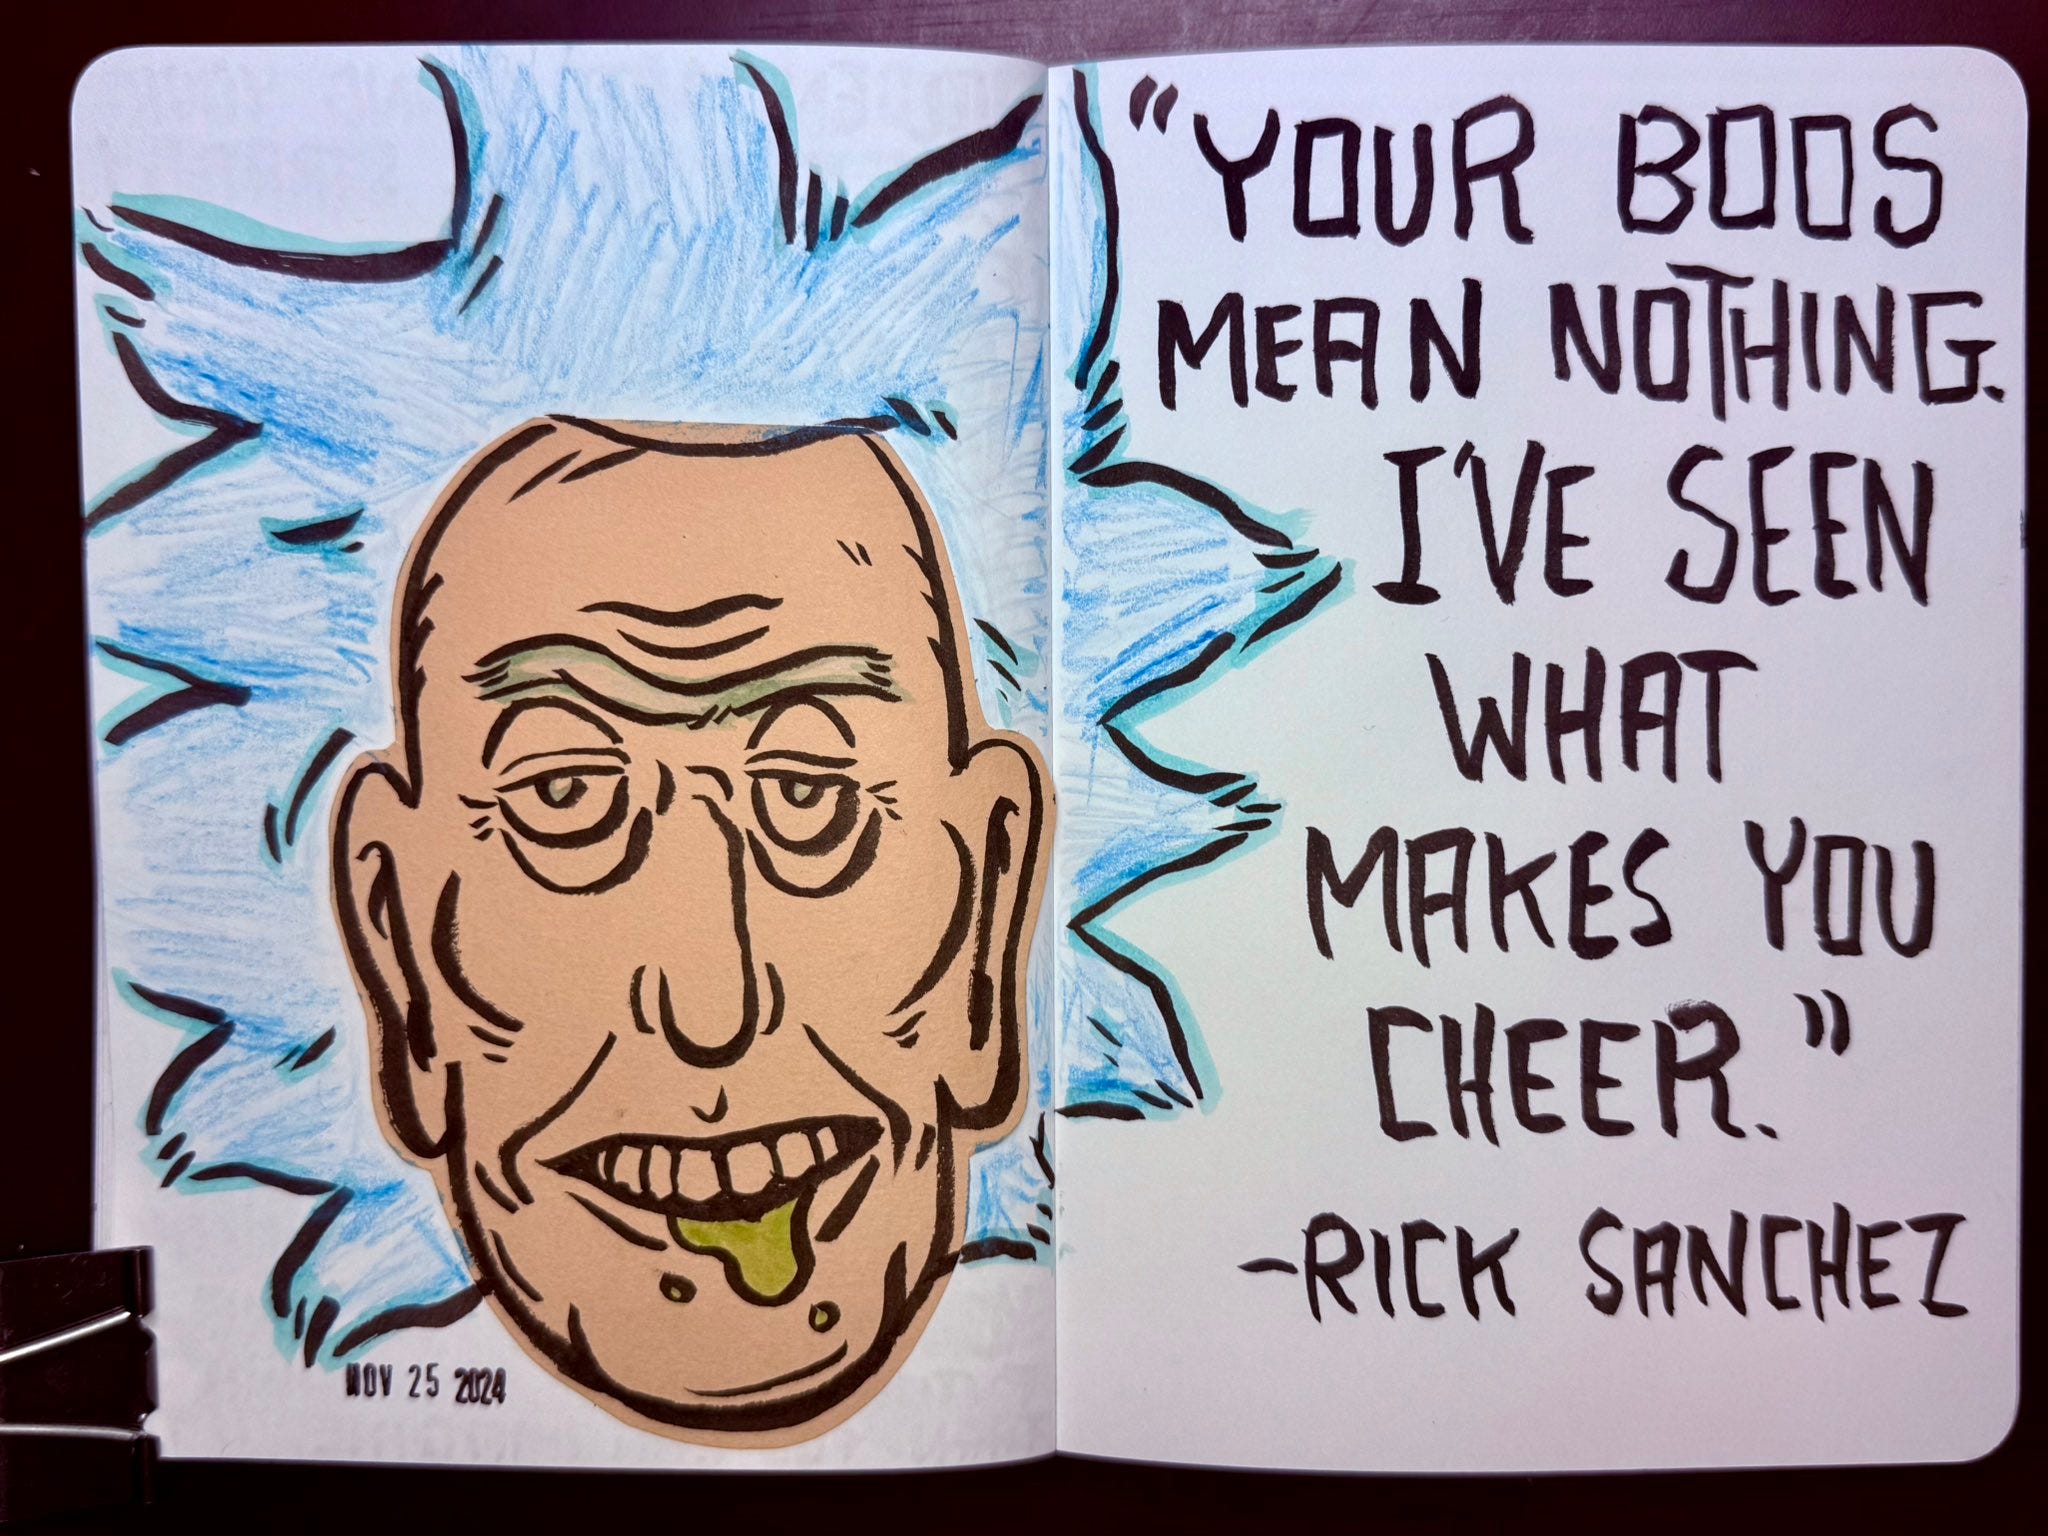 "YOUR BOOS
MEAN NOTHING.
I'VE SEEN
WHAT
MAKES YOU
CHEER."
-RICK SANCHEZ
NOV 25 2024